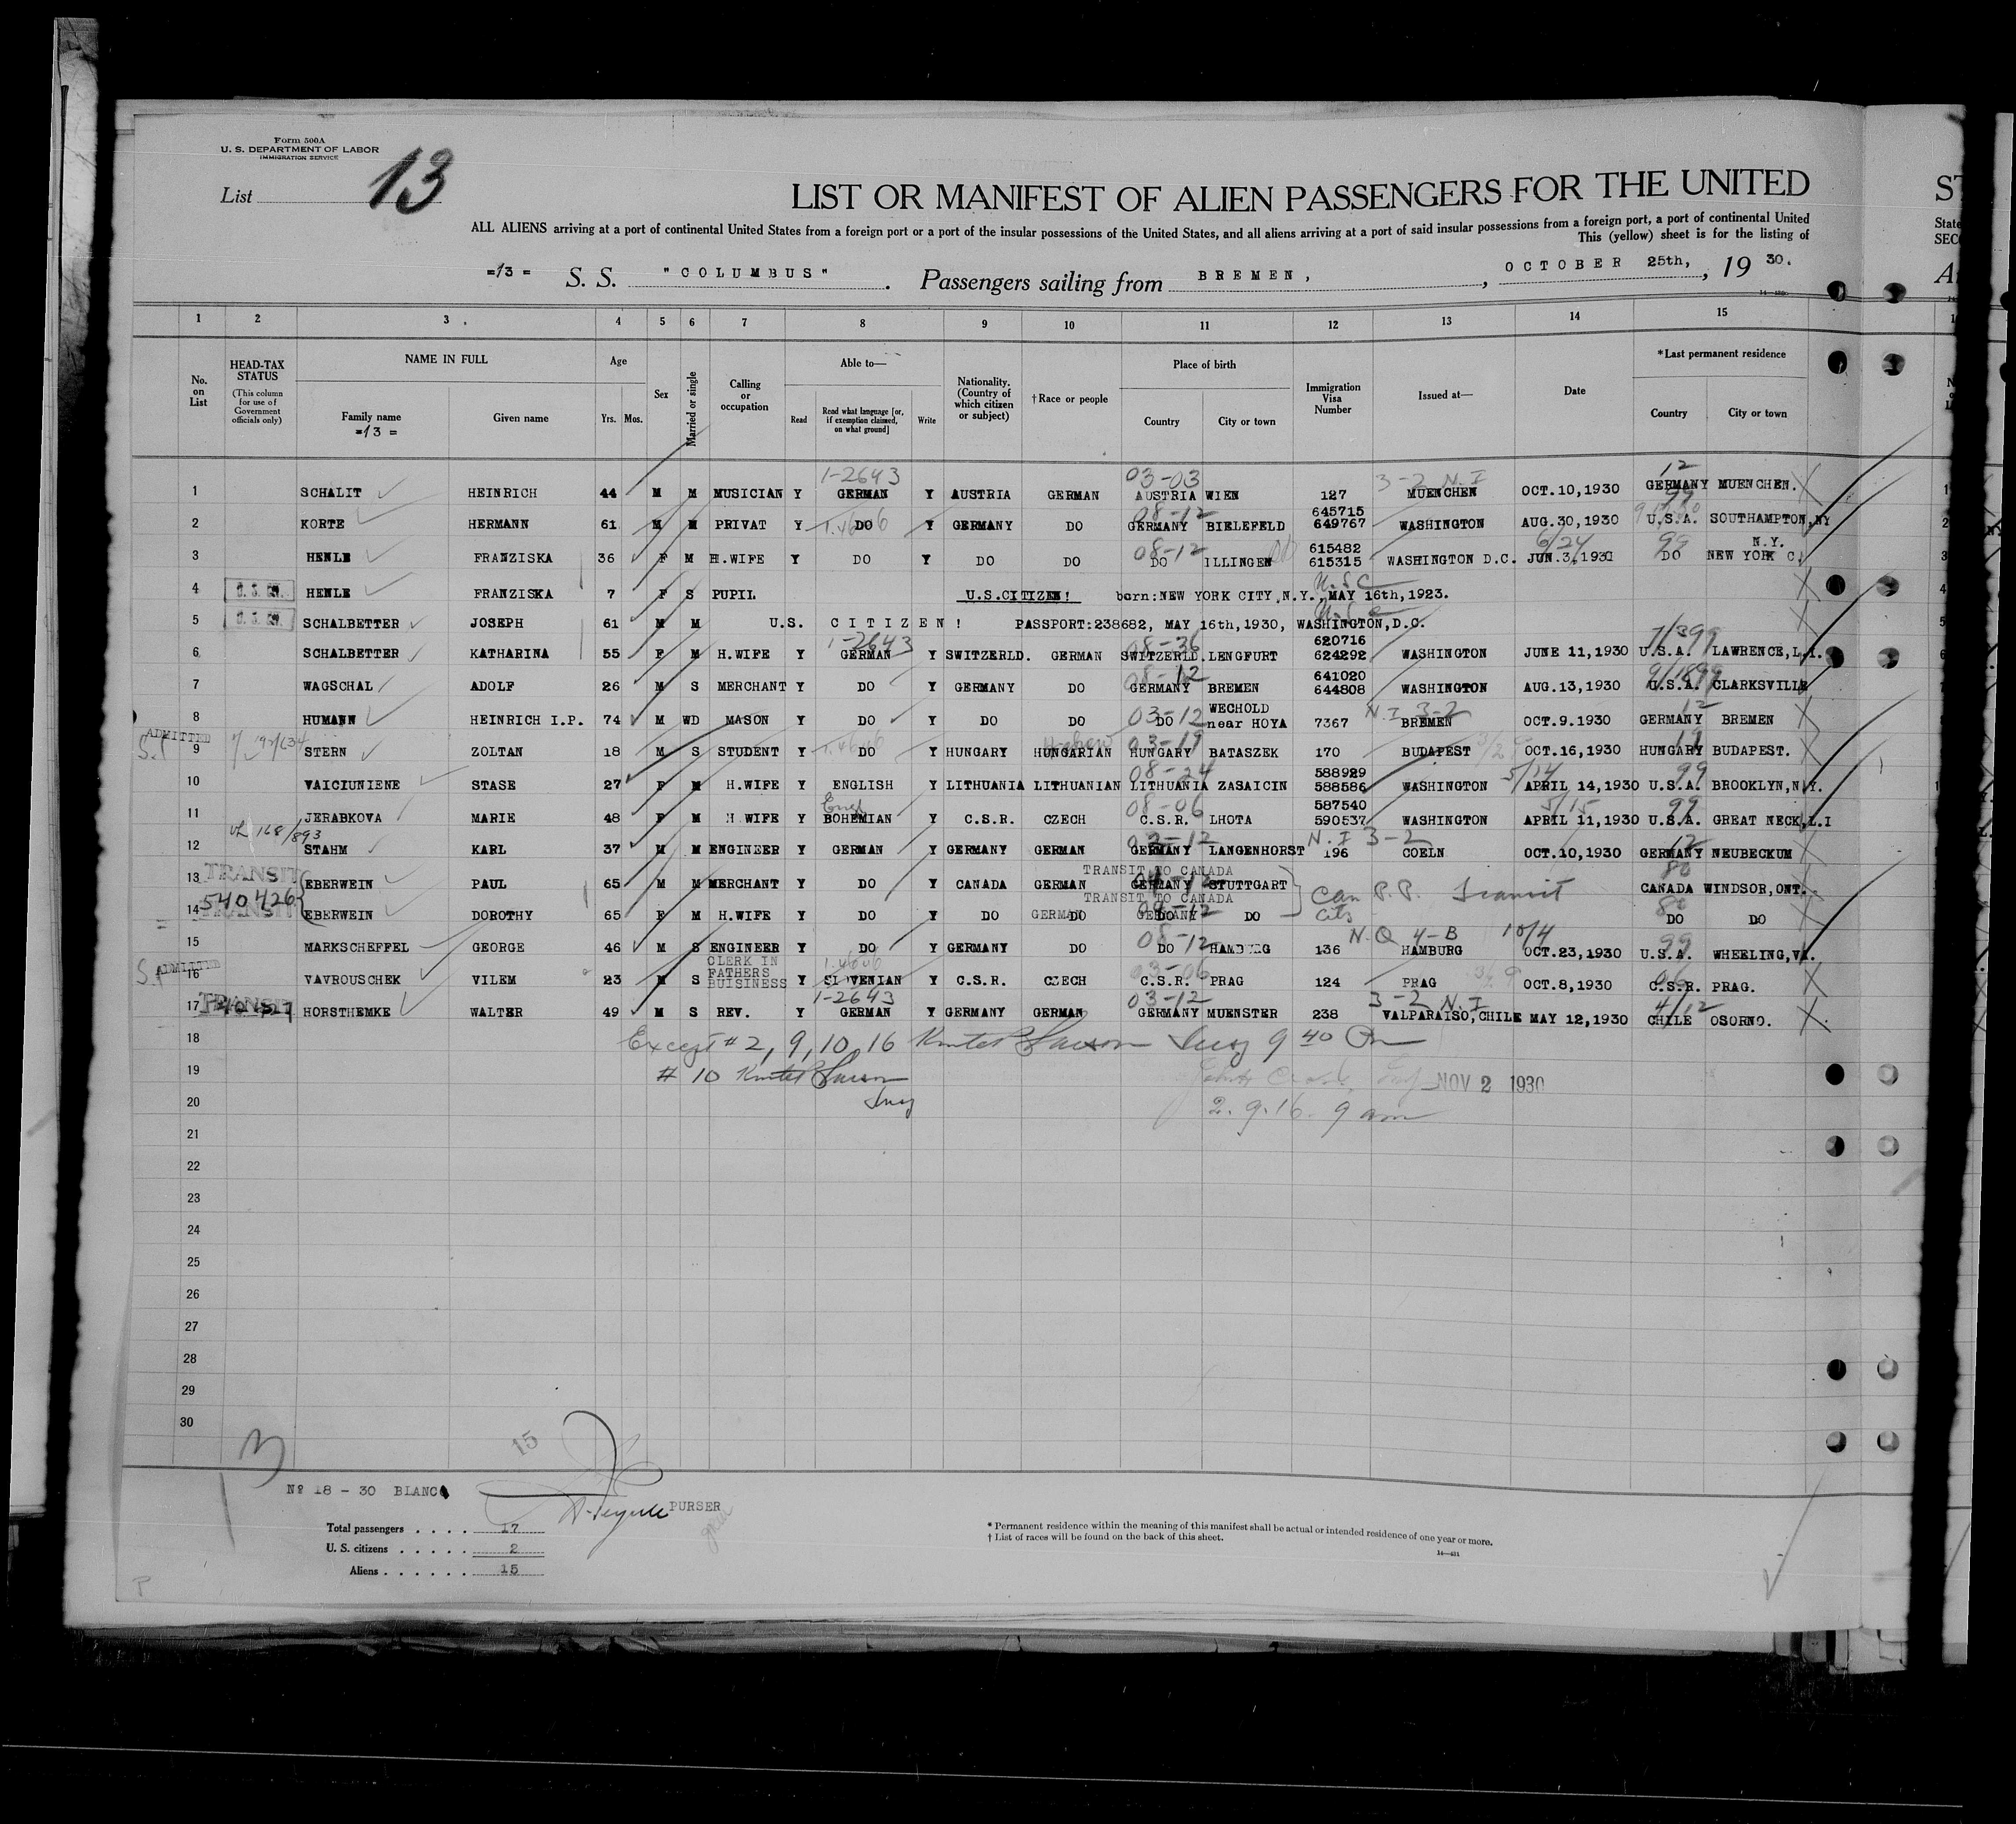 Form 500A
U. S. DEPARTMENT OF LABOR
IMMIGRATION SERVICE
List 13
LIST OR MANIFEST OF ALIEN PASSENGERS FOR THE UNITED
ALL ALIENS arriving at a port of continental United States from a foreign port or a port of the insular possessions of the United States, and all aliens arriving at a port of said insular possessions from a foreign port, a port of continental United
This (yellow) sheet is for the listing of
=13= S. S. "COLUMBUS". Passengers sailing from BREMEN, , OCTOBER 25th, , 19 30.
1 2 3 4 5 6 7 8 9 10 11 12 13 14 15
No. on List
HEAD-TAX STATUS (This column for use of Government officials only)
NAME IN FULL
Family name =13=
Given name
Age Yrs. Mos.
Sex
Married or single
Calling or occupation
Able to— Read Read what language [or, if exemption claimed, on what ground] Write
Nationality. (Country of which citizen or subject)
†Race or people
Place of birth Country City or town
Immigration Visa Number
Issued at—
Date
*Last permanent residence Country City or town
1-2643 03-03 3-2 N.I 12
1 SCHALIT HEINRICH 44 M M MUSICIAN Y GERMAN Y AUSTRIA GERMAN AUSTRIA WIEN 127 MUENCHEN OCT.10,1930 GERMANY MUENCHEN.
08-12 99
2 KORTE HERMANN 61 M M PRIVAT Y DO Y GERMANY DO GERMANY BIELEFELD 645715 649767 WASHINGTON AUG.30,1930 U.S.A. SOUTHAMPTON,NY
08-12 6/24 99
3 HENLE FRANZISKA 36 F M H.WIFE Y DO Y DO DO DO ILLINGEN 615482 615315 WASHINGTON D.C. JUN.3,1930 DO NEW YORK C. N.Y.
4 HENLE FRANZISKA 7 F S PUPIL U.S.CITIZEN! born:NEW YORK CITY,N.Y., MAY 16th,1923. U.S.C
5 SCHALBETTER JOSEPH 61 M M U.S. CITIZEN! PASSPORT:238682, MAY 16th,1930, WASHINGTON,D.C. U.S.C
1-2643 08-36 7/3 99
6 SCHALBETTER KATHARINA 55 F M H.WIFE Y GERMAN Y SWITZERLD. GERMAN SWITZERLD. LENGFURT 620716 624292 WASHINGTON JUNE 11,1930 U.S.A. LAWRENCE,L.I.
08-12 9/18 99
7 WAGSCHAL ADOLF 26 M S MERCHANT Y DO Y GERMANY DO GERMANY BREMEN 641020 644808 WASHINGTON AUG.13,1930 U.S.A. CLARKSVILLE
03-12 N.I 3-2 12
8 HUMANN HEINRICH I.P. 74 M WD MASON Y DO Y DO DO DO WECHOLD near HOYA 7367 BREMEN OCT.9.1930 GERMANY BREMEN
ADMITTED S.I Hebrew 03-19 19
9 STERN ZOLTAN 18 M S STUDENT Y DO Y HUNGARY HUNGARIAN HUNGARY BATASZEK 170 BUDAPEST OCT.16,1930 HUNGARY BUDAPEST.
08-24 5/14 99
10 VAICIUNIENE STASE 27 F M H.WIFE Y ENGLISH Y LITHUANIA LITHUANIAN LITHUANIA ZASAICIN 588929 588586 WASHINGTON APRIL 14,1930 U.S.A. BROOKLYN,N.Y.
Eng 08-06 5/15 99
11 JERABKOVA MARIE 48 F M H.WIFE Y BOHEMIAN Y C.S.R. CZECH C.S.R. LHOTA 587540 590537 WASHINGTON APRIL 11,1930 U.S.A. GREAT NECK,L.I
168/893 03-12 N.I 3-2 12
12 STAHM KARL 37 M M ENGINEER Y GERMAN Y GERMANY GERMAN GERMANY LANGENHORST 196 COELN OCT.10,1930 GERMANY NEUBECKUM
TRANSIT TRANSIT TO CANADA 80
13 EBERWEIN PAUL 65 M M MERCHANT Y DO Y CANADA GERMAN GERMANY STUTTGART Can P.P. Transit CANADA WINDSOR,ONT.
540426 TRANSIT TRANSIT TO CANADA 80
14 EBERWEIN DOROTHY 65 F M H.WIFE Y DO Y DO GERMAN DO GERMANY DO DO DO DO
08-12 N.Q 4-B 10/4 99
15 MARKSCHEFFEL GEORGE 46 M S ENGINEER Y DO Y GERMANY DO DO HAMBURG 136 HAMBURG OCT.23,1930 U.S.A. WHEELING,VA.
ADMITTED S.I 03-06 06
16 VAVROUSCHEK VILEM 23 M S CLERK IN FATHERS BUISINESS Y SLOVENIAN Y C.S.R. CZECH C.S.R. PRAG 124 PRAG OCT.8,1930 C.S.R. PRAG.
TRANSIT 1-2643 03-12 3-2 N.I
17 HORSTHEMKE WALTER 49 M S REV. Y GERMAN Y GERMANY GERMAN GERMANY MUENSTER 238 VALPARAISO,CHILE MAY 12,1930 CHILE OSORNO.
18 Except #2, 9, 10, 16 Insp 9 40 Pm
19 # 10 NOV 2 1930
20 Insp 2.9.16. 9 am
21
22
23
24
25
26
27
28
29
30
15
Nº 18 - 30 BLANCO
PURSER
Total passengers . . . . 17
U. S. citizens . . . . . 2
Aliens . . . . . . 15
* Permanent residence within the meaning of this manifest shall be actual or intended residence of one year or more.
† List of races will be found on the back of this sheet.